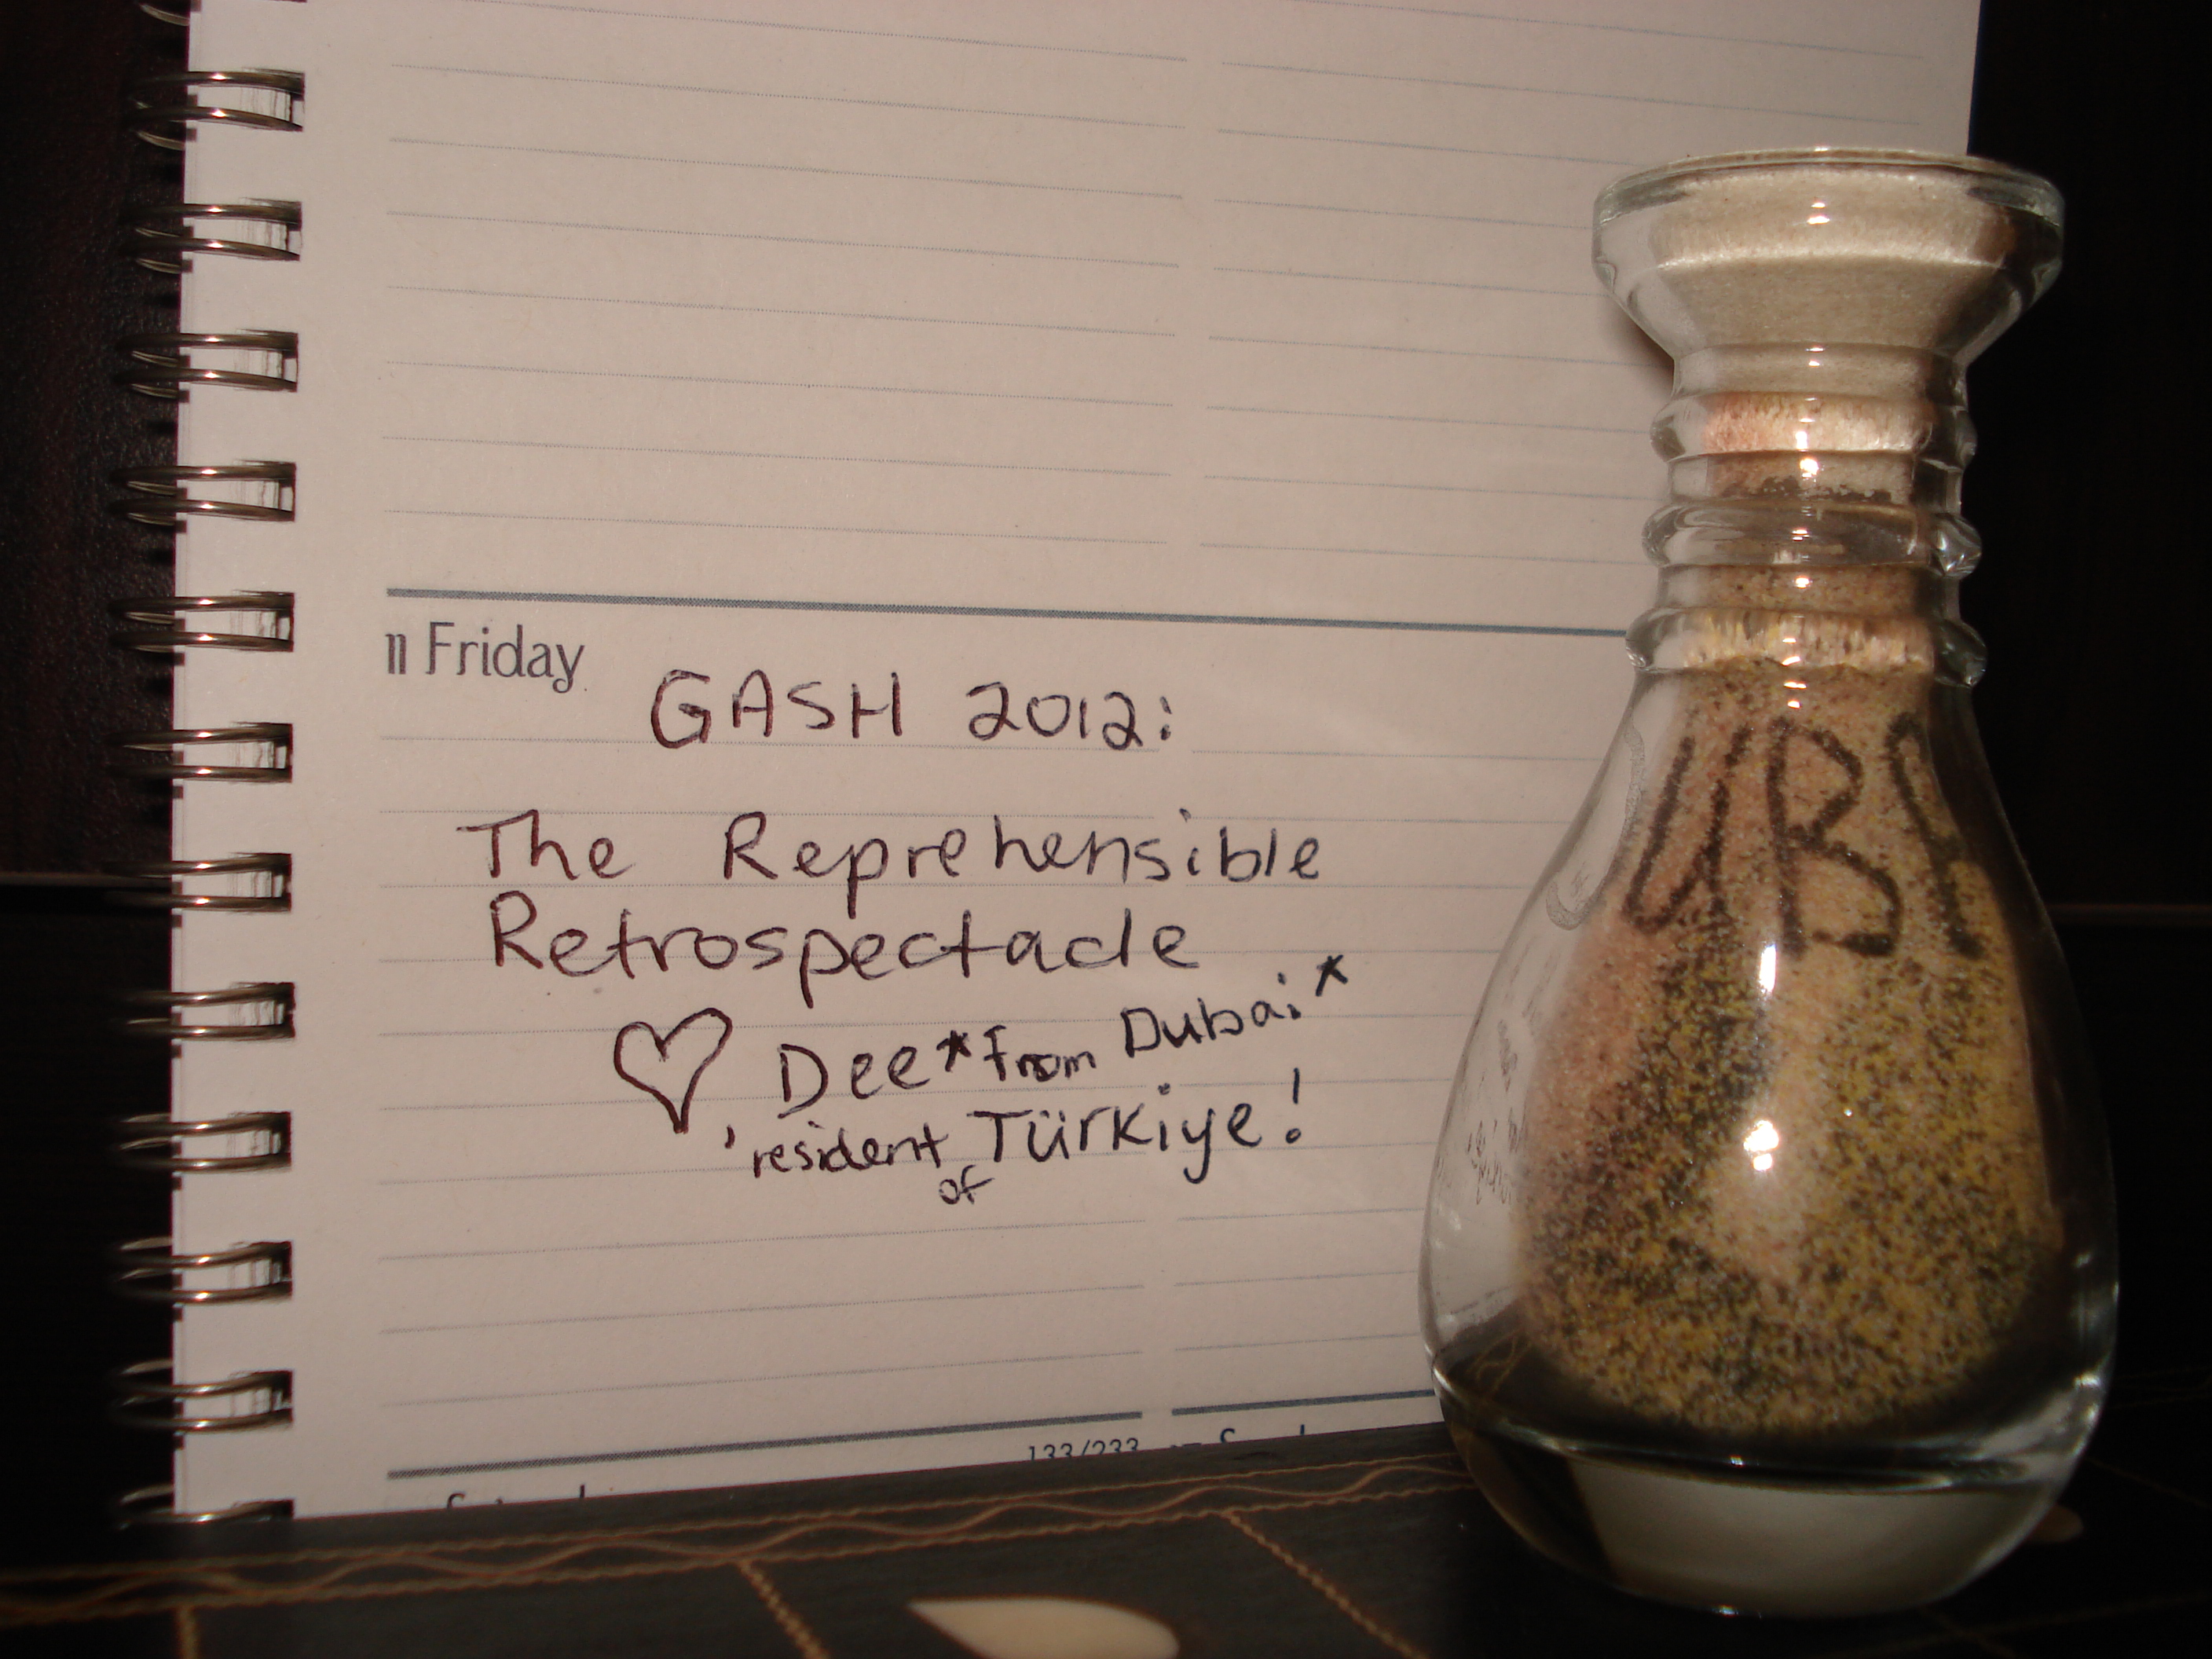 11 Friday
GASH 2012:
The Reprehensible
Retrospectacle
♡ Dee* from Dubai*
'resident of Türkiye!
133/233
UB